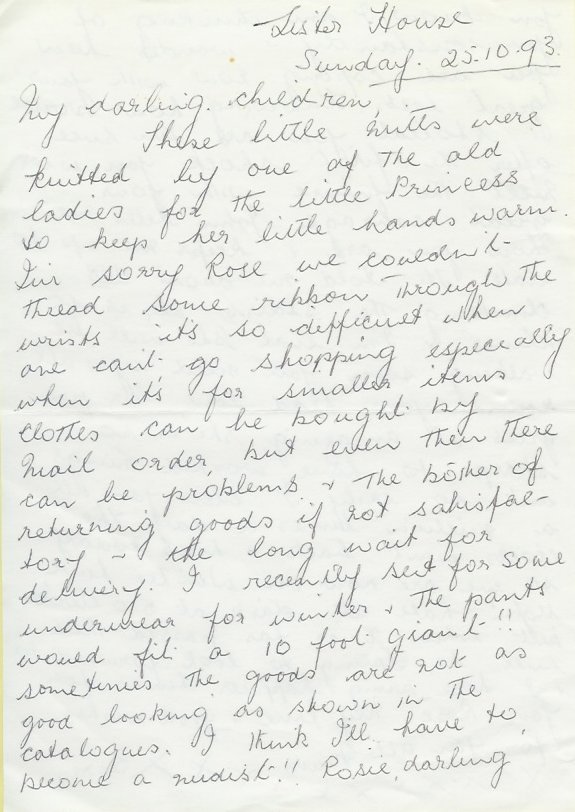 Lister House
Sunday. 25.10.93.
My darling children,
These little mitts were
knitted by one of the old
ladies for the little Princess
to keep her little hands warm.
I'm sorry Rose we couldn't
thread some ribbon through the
wrists it's so difficult when
one can't go shopping especially
when it's for smaller items
clothes can be bought by
mail order, but even then there
can be problems & the bother of
returning goods if not satisfac-
tory - the long wait for
delivery. I recently sent for some
underwear for winter & the pants
would fit a 10 foot giant!!
sometimes the goods are not as
good looking as shown in the
catalogues. I think I'll have to
become a nudist!! Rosie, darling